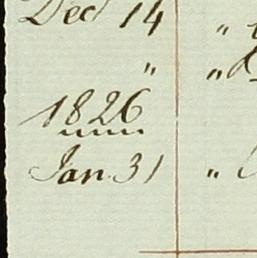 Dec 14 "
" "
1826
Jan. 31 "